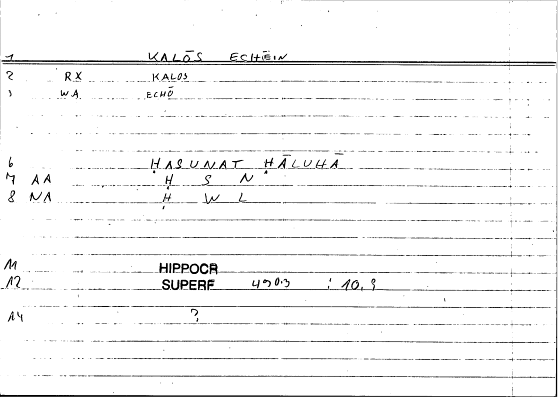 1 KALŌS ECHĒIN
2 RX KALOS
3 WA ECHŌ
6 ḤASUNAT ḤĀLUHĀ
7 AA Ḥ S N
8 NA Ḥ W L
11 HIPPOCR
12 SUPERF : 10.
14 ?